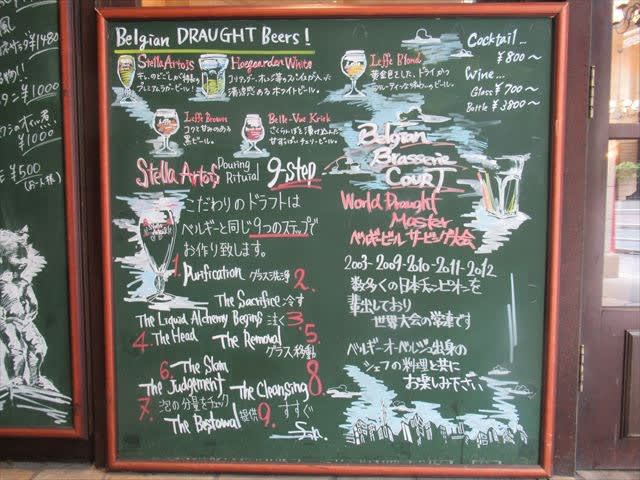 ¥1480
¥1000
¥1000
¥500
(お一人様)
Belgian DRAUGHT Beers!
Stella Artois
プレミアムラガービール!
Hoegaarden White
清涼感あるホワイトビール。
Leffe Blond
黄金色をした、ドライかつ
フルーティーな味わいのビール。
Cocktail...
¥800~
Wine...
Glass ¥700~
Bottle ¥3800~
Leffe Brown
コクと甘みのある
黒ビール。
Belle-Vue Kriek
さくらんぼを漬け込んだ
甘ずっぱいチェリービール。
Belgian
Brasserie
Court
Stella Artois Pouring Ritual 9-step
こだわりのドラフトは
ベルギーと同じ9つのステップで
お作り致します。
World Draught
Master
ベルギービール サービング大会
1. Purification グラス洗浄
2. The Sacrifice 冷す
The Liquid Alchemy Begins 注ぐ 3.
4. The Head The Removal 5.
グラス移動
6. The Skim
The Judgement The Cleansing 8.
7. 泡の分量をチェック すすぐ
The Bestowal 提供 9.
2003-2009-2010-2011-2012
数多くの日本チャンピオンを
輩出しており
世界大会の常連です
ベルギーオーベルジュ出身の
シェフの料理と共に
お楽しみ下さい